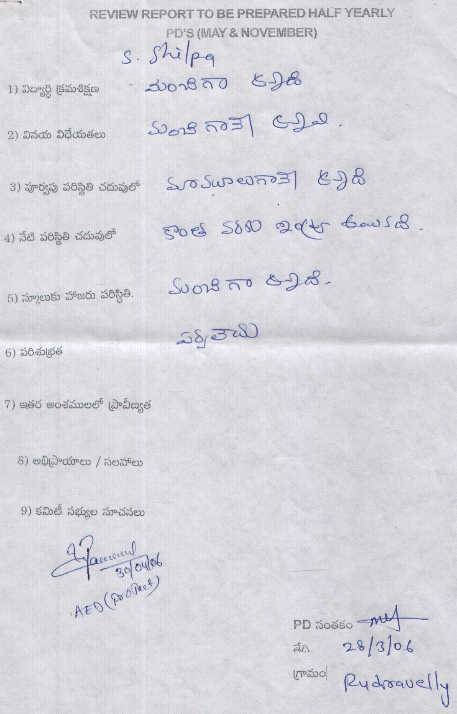 REVIEW REPORT TO BE PREPARED HALF YEARLY
PD'S (MAY & NOVEMBER)
S. Shilpa
1) విద్యార్థి క్రమశిక్షణ మంచిగా ఉన్నది
2) వినయ విధేయతలు మంచి గానే ఉన్నవి.
3) పూర్వపు పరిస్థితి చదువులో మామూలుగానే ఉన్నది
4) నేటి పరిస్థితి చదువులో కొంత వరకు
5) స్కూలుకు హాజరు పరిస్థితి. మంచిగా ఉన్నది.
6) పరిశుభ్రత
7) ఇతర అంశములలో ప్రావీణ్యత
8) అభిప్రాయాలు / సలహాలు
9) కమిటీ సభ్యుల సూచనలు
30/04/06
AEO (Project)
PD సంతకం
తేది. 28/3/06
గ్రామం Rudravelly